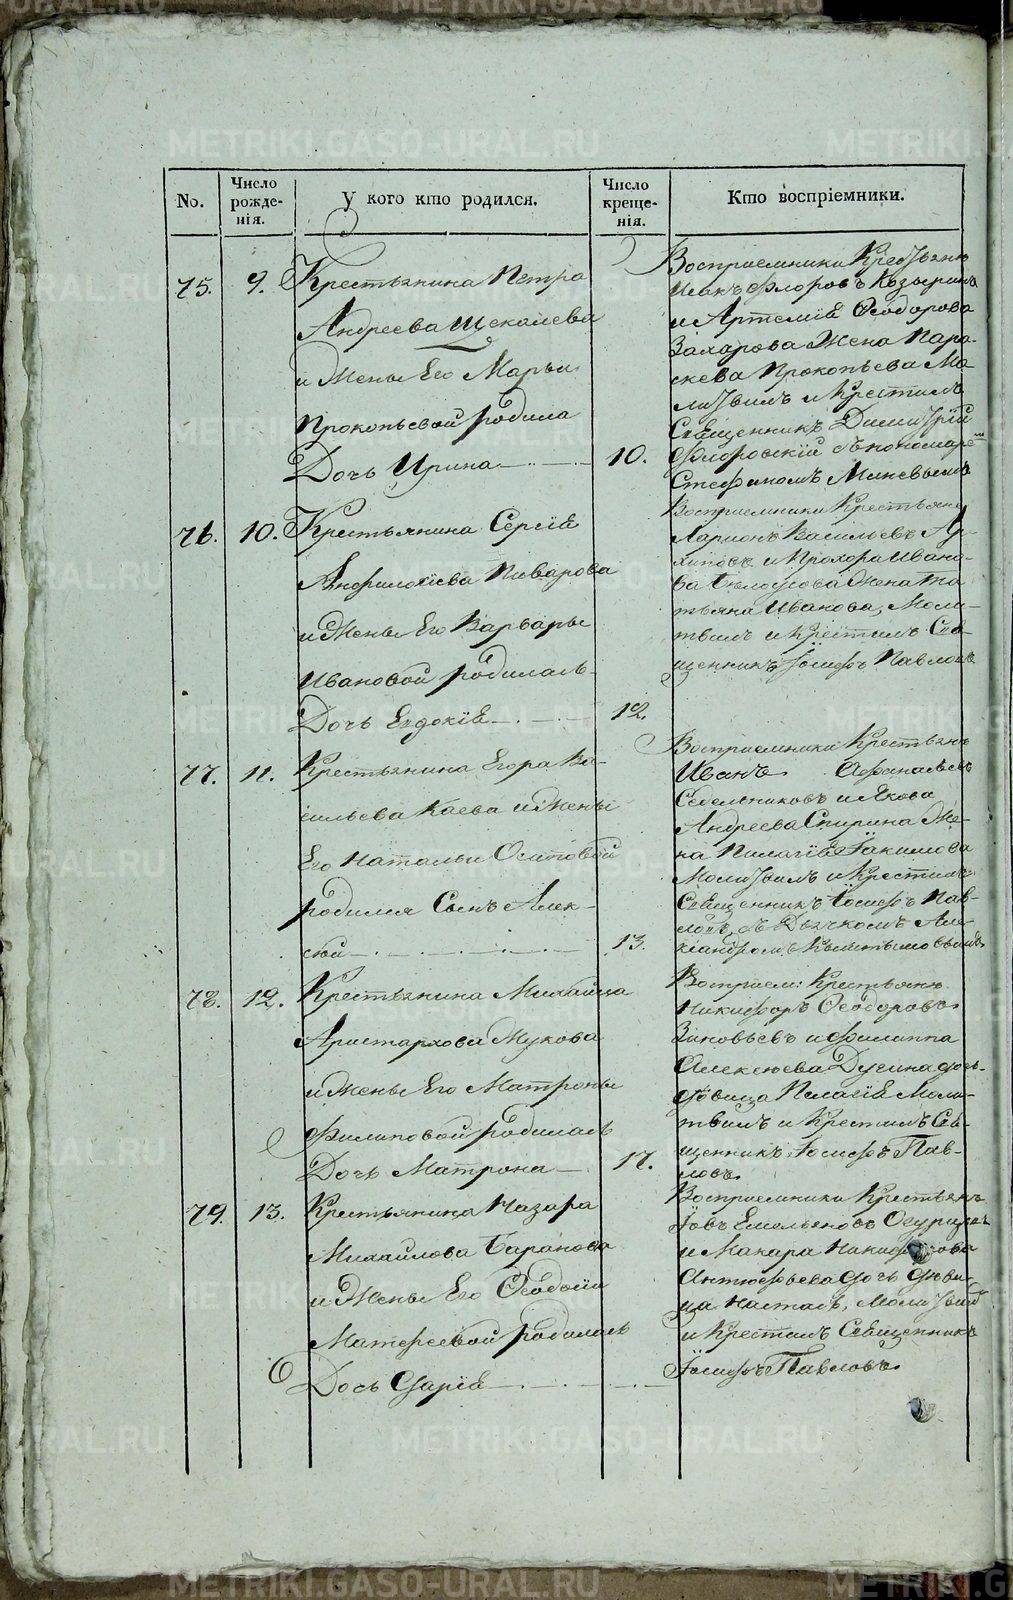 METRIKI.GASO-URAL.RU
No.
Число рожде-
нія.
У кого кто родился.
Число креще-
нія.
Кто воспріемники.
75.
9.
Крестьянина Петра
Андреева Щекалева
и жены Его Марьи
Прокопьевой родила
Дочь Ирина
10.
Восприемники Крестьянъ
Исакъ Флоровъ Козыринъ
и Артемія Ѳеодорова
Захарова Жена Пара-
скева Прокопьева Мо-
литвилъ и Крестилъ
Священникъ Димитрій
Флоровскій съ пономаремъ
Стефаномъ
76.
10.
Крестьянина Сергія
Анфилохіева Пиварова
и Жены Его Варвары
Ивановой родилась
Дочь Евдокія
12.
Восприемники Крестьянъ
Ларионъ Васильевъ Ар-
хиповъ и Прохора Ивано-
ва Бѣлоусова Жена Та-
тьяна Иванова, Моли-
твилъ и Крестилъ Свя-
щенникъ Іосифъ Павловъ
77.
11.
Крестьянина Егора Ва-
сильева Каева и Жены
Его Натальи Осиповой
родился Сынъ Алек-
сѣй
13.
Восприемники Крестьянъ
Иванъ Афанасьевъ
Седельниковъ и Якова
Андреева Спирина Же-
на Пелагія Іакимова
Молитвилъ и Крестилъ
Священникъ Іосифъ Пав-
ловъ, съ Дьячкомъ Але-
ксандромъ
78.
12.
Крестьянина Михайла
Аристархова Жукова
и Жены Его Матроны
Филиповой родилась
Дочь Матрона
17.
Восприем: Крестьянъ
Никифоръ Ѳеодоровъ
Зиновьевъ и Филиппа
Алексеева Дугина дочь
дѣвица Пелагія Моли-
твилъ и Крестилъ Свя-
щенникъ Іосифъ Пав-
ловъ
79.
13.
Крестьянина Назара
Михайлова Баранова
и Жены Его Ѳеодосіи
Матфеевой родилась
Дочь Дарія
Восприемники Крестьянъ
Іовъ Емельяновъ
и Макара Никифорова
Антюфьева дочь дѣви-
ца Настасья, Молитвилъ
и Крестилъ Священникъ
Іосифъ Павловъ